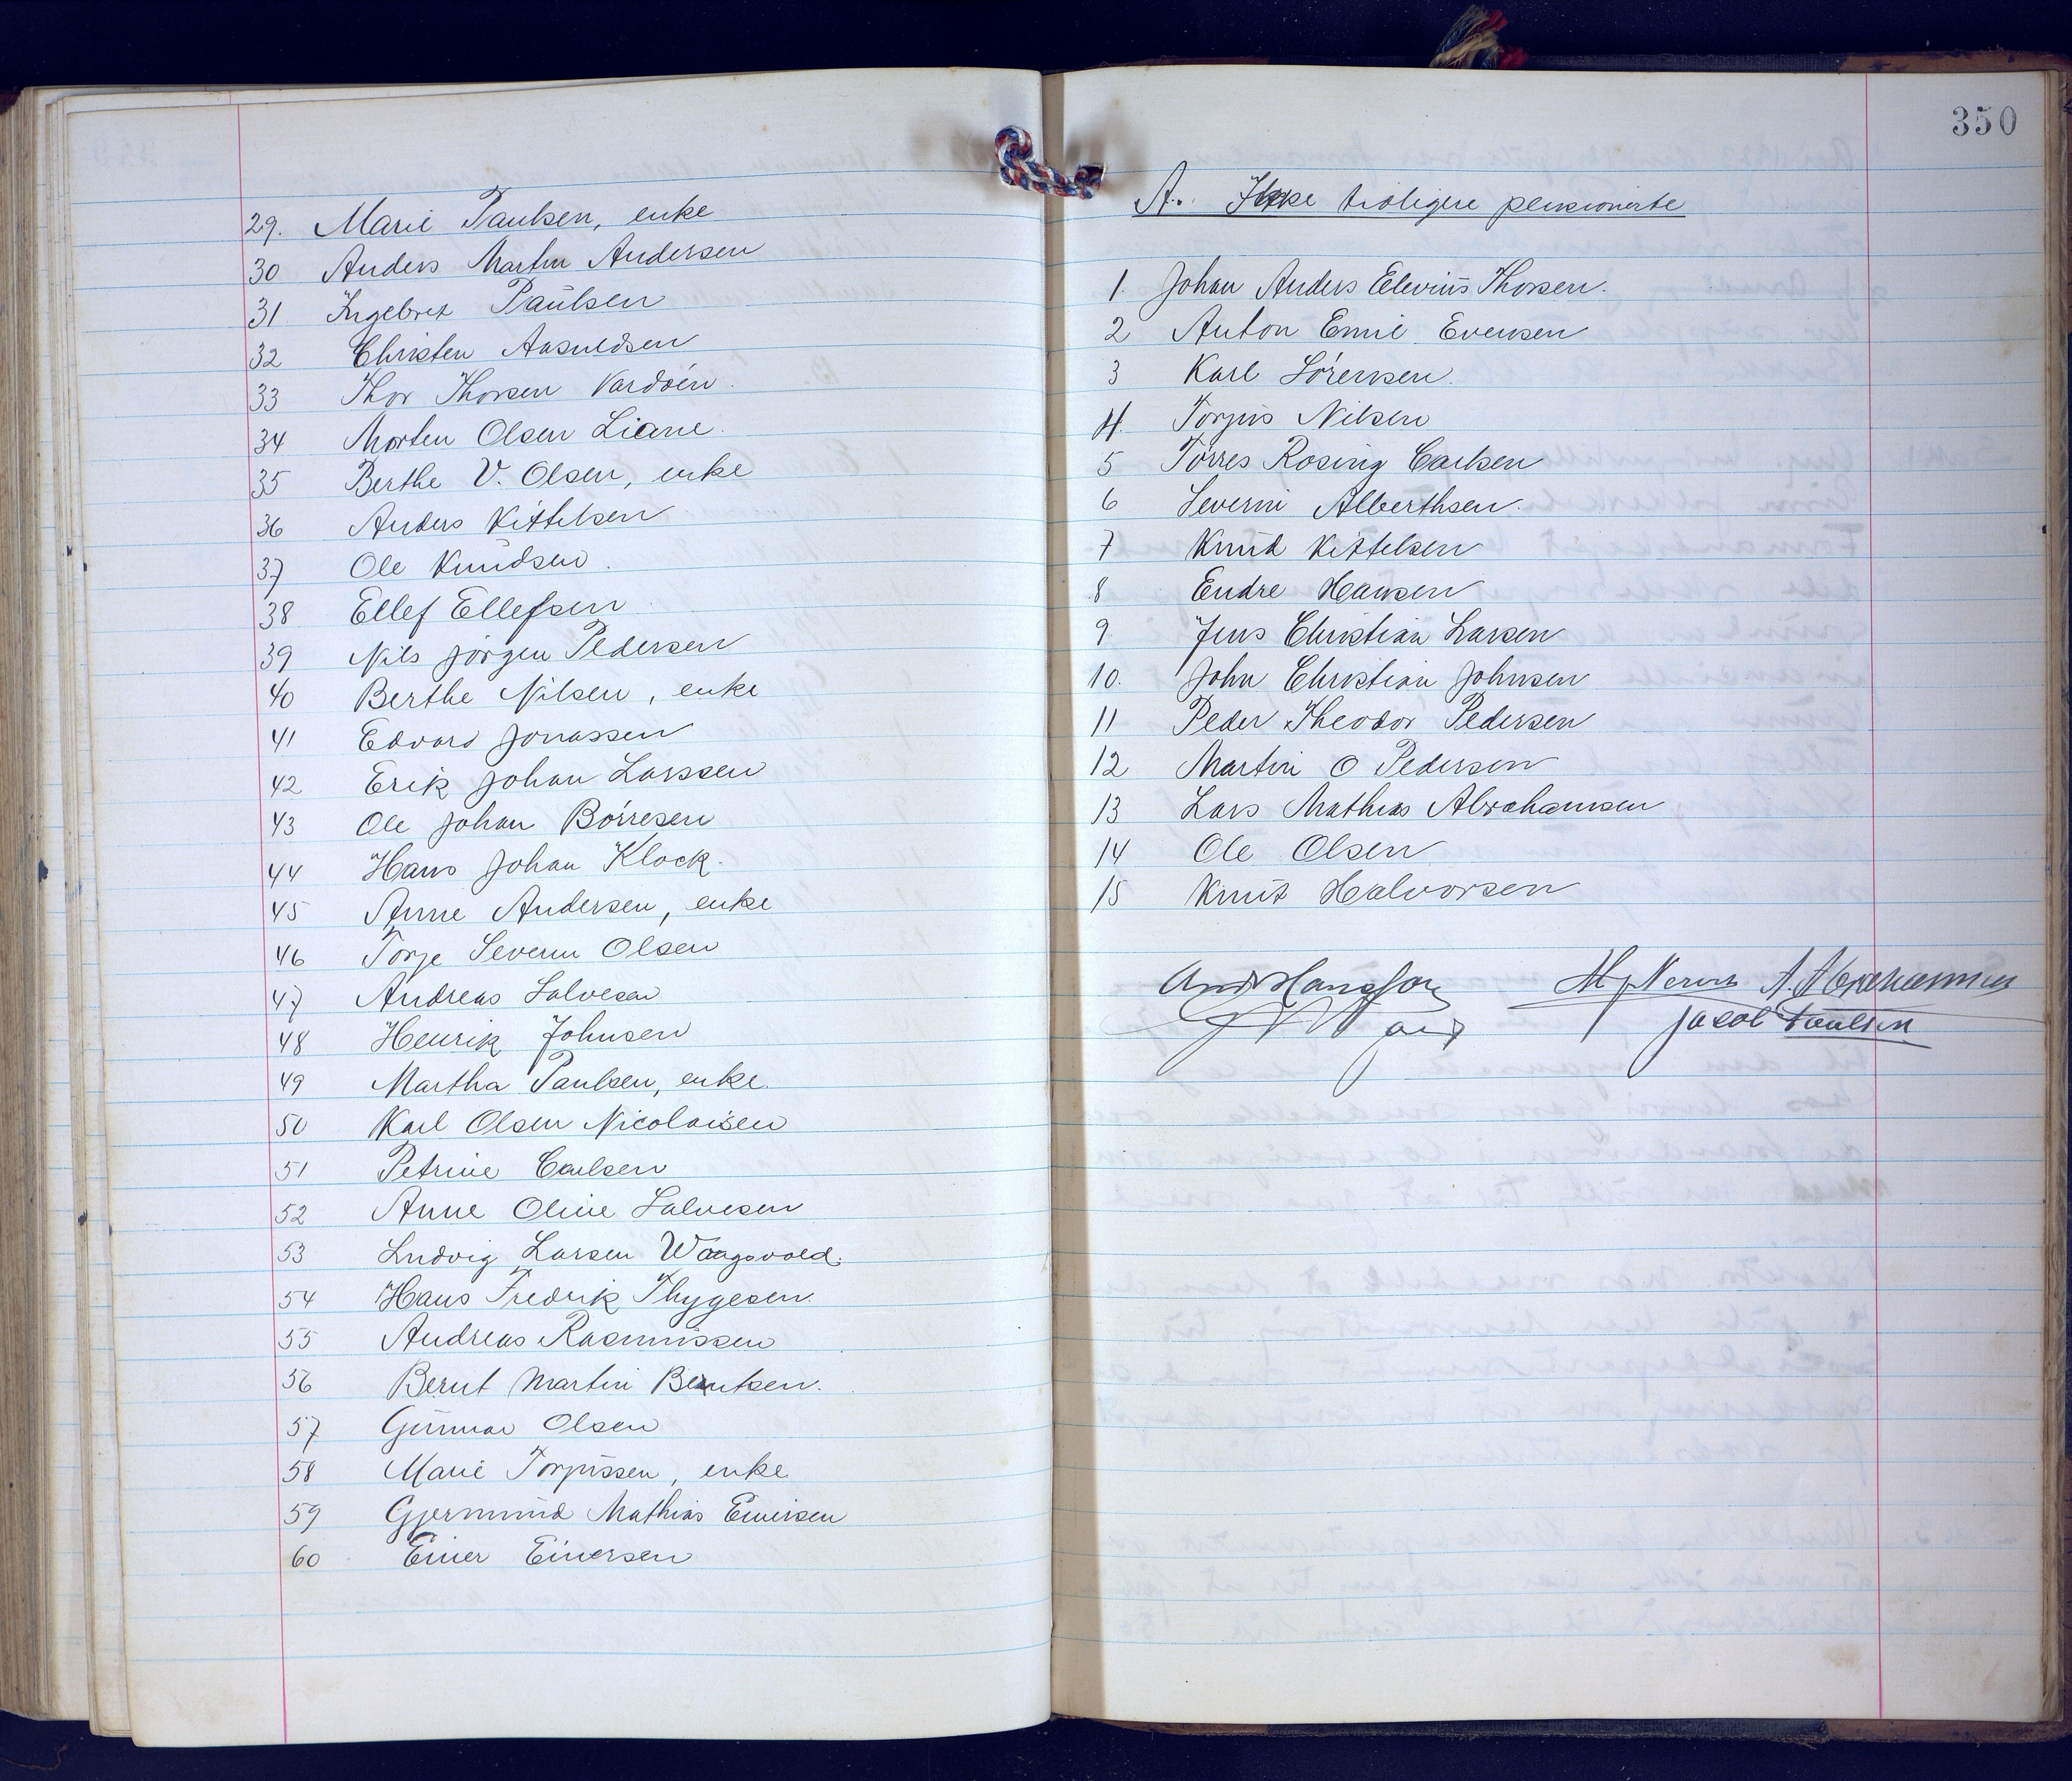 29. Marie Paulsen, enke
30 Anders Martin Andersen
31 Ingebret Paulsen
32 Christen Aasuldsen
33 Thor Thorsen Vardøen.
34 Morten Olsen Liane.
35 Berthe V. Olsen, enke
36 Anders Kittelsen
37 Ole Knudsen.
38 Ellef Ellefsen
39 Nils Jörgen Pedersen
40 Berthe Nilsen, enke
41 Edvard Jonassen
42 Erik Johan Larssen
43 Ole Johan Börresen
44 Hans Johan Klock.
45 Anne Andersen, enke
46 Torje Severin Olsen
47 Andreas Salvesen
48 Henrik Johnsen
49 Martha Paulsen, enke.
50 Karl Olsen Nicolaisen
51 Petrine Carlsen
52 Anne Oline Salvesen
53 Ludvig Larsen Waagsvold.
54 Hans Fredrik Thygesen.
55 Andreas Rasmussen
56 Bernt Martin Berntsen.
57 Gunnar Olsen
58 Marie Torjussen, enke
59 Gjermund Mathias Einersen
60 Einer Einersen
350
A. Ikke tidligere pensionerte
1. Johan Anders Elevius Thorsen.
2 Anton Emil Evensen
3 Karl Sörensen.
4. Torjus Nilsen
5 Torres Rosing Carlsen
6 Severin Alberthsen.
7 Knud Kittelsen
8 Endre Hansen
9 Jens Christian Larsen
10. John Christian Johnsen
11 Peder Theodor Pedersen
12 Martin O Pedersen
13 Lars Mathias Abrahamsen
14 Ole Olsen
15 Knut Halvorsen
A. Abrahamsen
Jacob Paulsen.